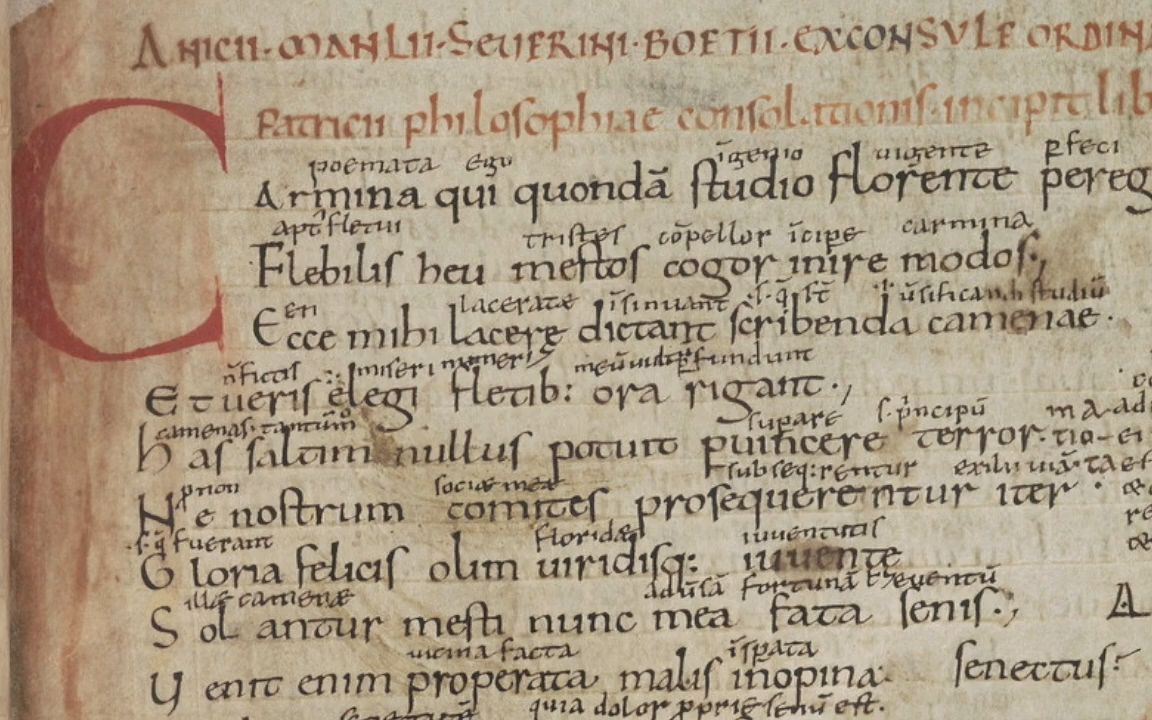 ANICII·MANLII·SEVERINI·BOETII·EXCONSVLE ORDINA
Patricii philosophiae consolationis·incipit lib
poemata ego īgenio uigente ꝑfeci
CArmina qui quondā studio florente pereg
apt fletui tristes cōpellor īcipe carmina
Flebilis heu mestos cogor inire modos·,
en lacerate īsinuant .s. q̄ st̄ studiū
Ecce mihi lacerę dictant scribenda camenae·
n̄ fictis miseri muneris fundunt
Et ueris elegi fletib: ora rigant·,
camenas tantūmo supare .s. p̄ncipū
has saltim nullus potuit puincere terror·
priori sociae meae subseq:rentur exilii uiā
Ne nostrum comites prosequerentur iter·
.s. q̄ fuerant floridae iuuentutis
Gloria felicis olim uiridisq: iuuente
illae camenae aduersā fortunā euentū
Solantur mesti nunc mea fata senis·,
uicina facta īspata
Venit enim properata malis inopina senectus
quia dolor ꝓprie seniū est.